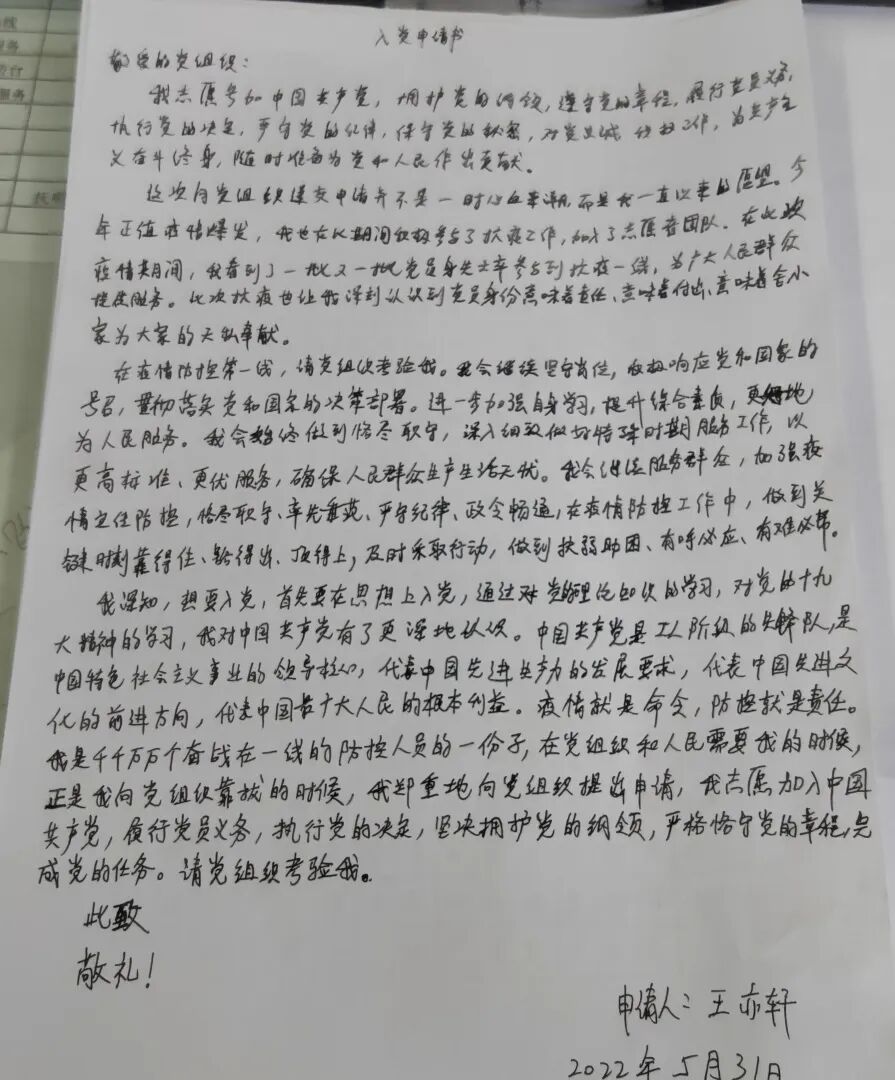 入党申请书
敬爱的党组织：
我志愿参加中国共产党，拥护党的纲领，遵守党的章程，履行党员义务，
执行党的决定，严守党的纪律，保守党的秘密，对党忠诚，积极工作，为共产主
义奋斗终身，随时准备为党和人民作出贡献。
这次向党组织递交申请并不是一时心血来潮，而是我一直以来的愿望。今
年正值疫情爆发，我也在此期间积极参与了抗疫工作，加入了志愿者团队。在此次
疫情期间，我看到了一批又一批党员身先士卒参与到抗疫一线，为广大人民群众
提供服务。此次抗疫也让我深刻认识到党员身份意味着责任、意味着付出、意味着舍小
家为大家的无私奉献。
在疫情防控第一线，请党组织考验我。我会继续坚守岗位，积极响应党和国家的
号召，贯彻落实党和国家的决策部署。进一步加强自身学习，提升综合素质，更好地
为人民服务。我会始终做到恪尽职守，深入细致做好特殊时期服务工作，以
更高标准、更优服务，确保人民群众生产生活无忧。我会继续服务群众，加强疫
情立住防控，恪尽职守、率先垂范、严守纪律、政令畅通，在疫情防控工作中，做到关
键时刻靠得住、豁得出、顶得上，及时采取行动，做到扶弱助困、有呼必应、有难必帮。
我深知，想要入党，首先要在思想上入党，通过对党的理论知识的学习，对党的十九
大精神的学习，我对中国共产党有了更深地认识。中国共产党是工人阶级的先锋队，是
中国特色社会主义事业的领导核心，代表中国先进生产力的发展要求，代表中国先进文
化的前进方向，代表中国最广大人民的根本利益。疫情就是命令，防控就是责任。
我是千千万万个奋战在一线的防控人员的一份子，在党组织和人民需要我的时候，
正是我向党组织靠拢的时候，我郑重地向党组织提出申请，我志愿加入中国
共产党，履行党员义务，执行党的决定，坚决拥护党的纲领，严格恪守党的章程，完
成党的任务。请党组织考验我。
此致
敬礼！
申请人：王亦轩
2022年5月31日